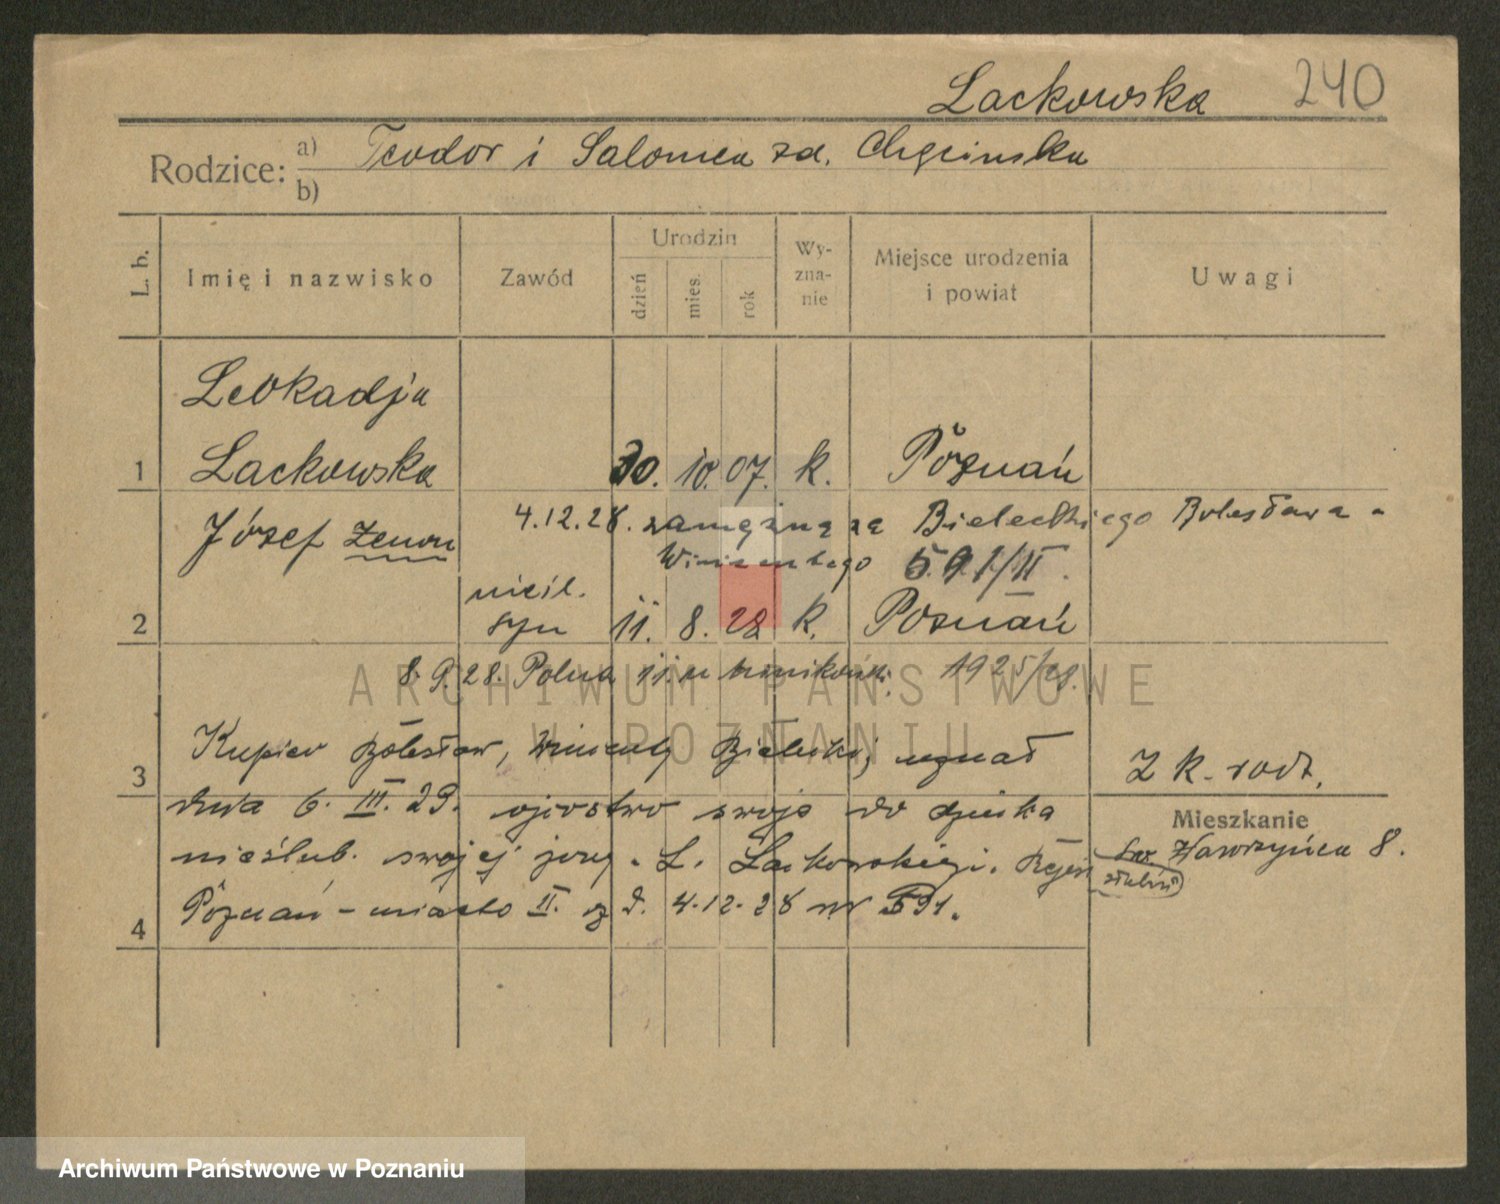 Lackowska 240
Rodzice: a) Teodor i Salomea zd. Chęcińska
b)
L. b. Imię i nazwisko Zawód Urodzin dzień mies. rok Wy-zna-nie Miejsce urodzenia i powiat Uwagi
Leokadja
1 Lackowska 30. 10. 07. k. Poznań
Józef Zenon 4.12.28. zamężną za Bieleckiego Bolesława -
Wincentego 591/II.
nieśl.
2 syn 11. 8. 28 k. Poznań
8.9.28. Polna 11. u 1925/28.
Kupiec Bolesław, Wincenty Bielecki, uznał
3 Z k. rodz.
dnia 6. III. 29. ojcostwo swoje do dziecka
Mieszkanie
nieślub. swojej żony. L. Lackowskiej. Rejest. Św. Wawrzyńca 8.
Poznań - miasto II. z d. 4.12.28 nr 591.
4
ARCHIWUM PAŃSTWOWE
W POZNANIU
Archiwum Państwowe w Poznaniu